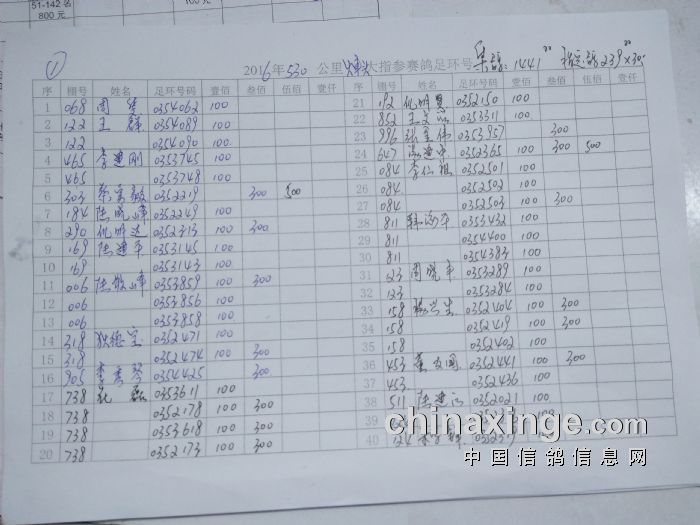 51-142名
800元
100元
① 2016年530公里 大指参赛鸽足环号 集鸽:1441 指定鸽239×300
序 棚号 姓名 足环号码 壹佰 叁佰 伍佰 壹仟
1 068 周 0354062 100
2 122 王群 0354089 100
3 122 0354090 100
4 465 李建刚 0353745 100
5 465 0353748 100
6 303 0352219 300 500
7 184 陆 峰 0352249 100
8 290 仇明达 0352313 100 300
9 169 陆建平 0353145 100
10 169 0353143 100
11 006 陆 峰 0353859 100 300
12 006 0353856 100
13 006 0353858 100
14 318 狄德宝 0352471 100
15 318 0352474 100 300
16 905 李秀琴 0354425 300
17 738 孔磊 0353611 100
18 738 0352178 100 300
19 738 0353618 100 300
20 738 0352173 100 300
序 棚号 姓名 足环号码 壹佰 叁佰 伍佰 壹仟
21 112 仇明 0352150 100
22 852 王 0353311 100
23 996 张 伟 0353957 300
24 647 0352365 100 300 500
25 084 李仁 0352501 100
26 084 0352502 100
27 084 0352503 100 300
28 811 韩 平 0353432 100
29 811 0354400 100
30 811 0354383 100
31 123 周晓平 0353289 100
32 123 0353284 100
33 158 张兴生 0352404 100 300
34 158 0352419 100 300
35 158 0352402 100
36 453 0352441 100 300
37 453 0352436 100
38 511 陆建 0352021 100
39
40 124 李
chinaxinge.com
中国信鸽信息网